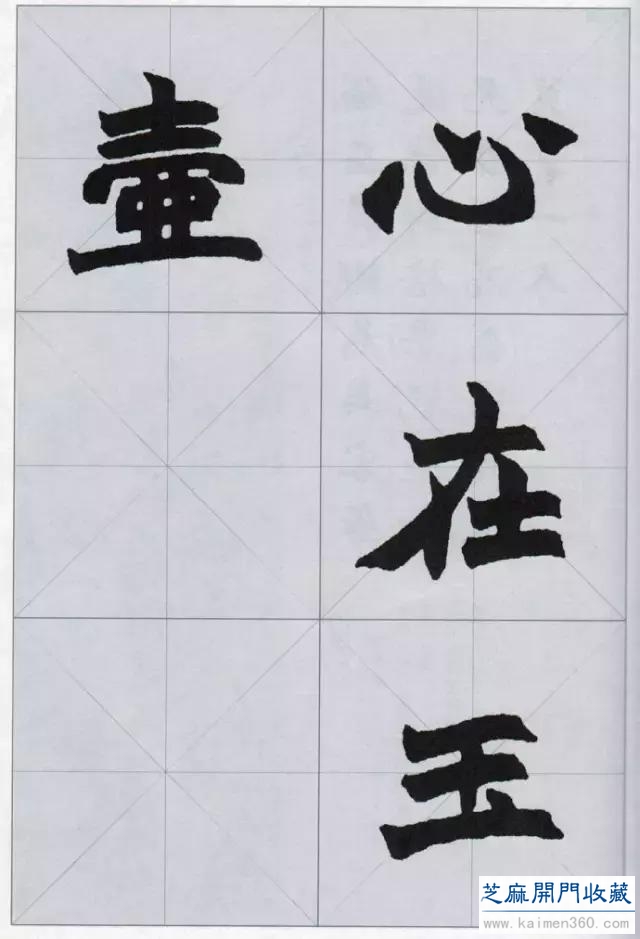 心在玉
壺
芝麻開門收藏
www.kaimen360.com